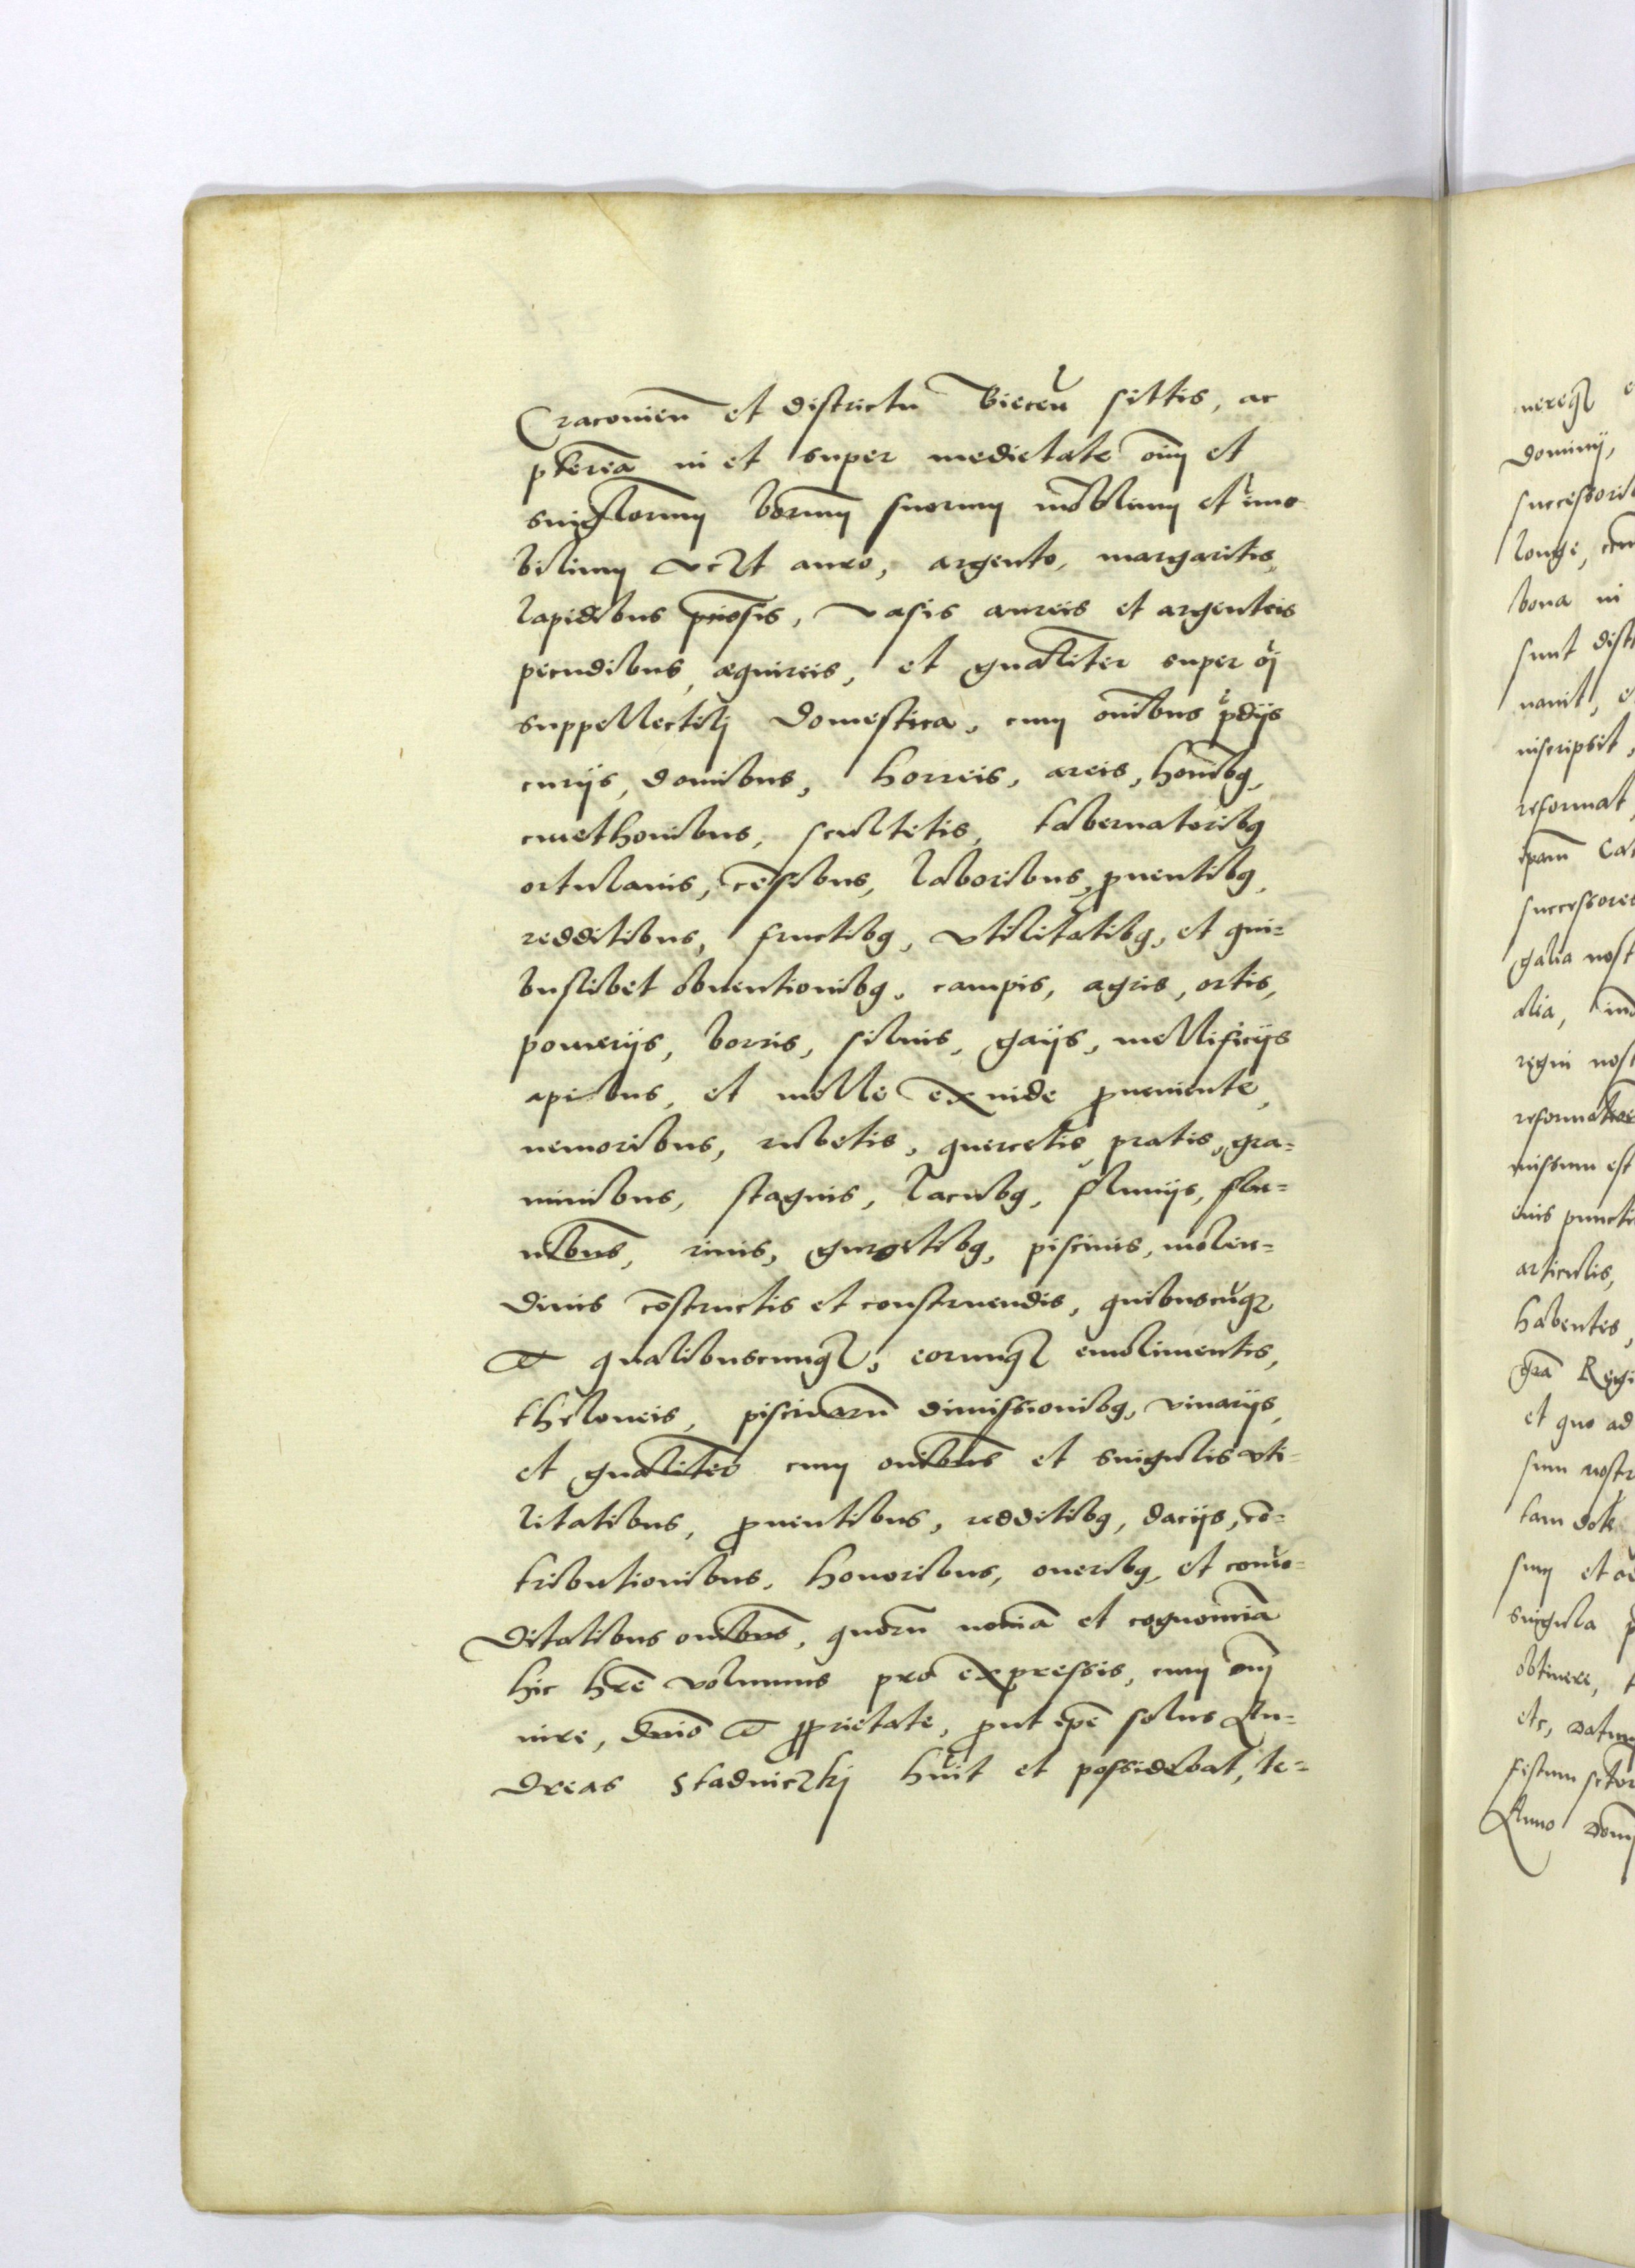 Craconien̄ et districtu Biecen̄ sittis, ac
pterea in et super medietate oīm et
singlorum borum suorum moblium et imo
bilium uczt auro, argento, margaritis,
lapidibus prīosis, vasis aureis et argenteis
pecudibus, equireis, et gnaliter super oī
suppellectilj domestica, cum onībus pdijs
curijs, domibus, horreis, areis, homībq,
cmethonibus, scultetis, tabernatoribq
ortulanis, cēsibus, laboribus, ꝓuentibq,
redditibus, fructibq, vtilitatibq, et qui=
buslibet obuentionibq, campis, agris, ortis,
pomerijs, borris, siluis, gaijs, mellificijs
apibus, et melle exinde ꝓueniente,
nemoribus, rubetis, quercetis, pratis, gra=
minibus, stagnis, lacubq, fluuijs, flu=
nībus, riuis, gurgitibq, piscinis, molen=
dinis cōstructis et construendis, quibuscūqꝫ
et qualibuscunqꝫ, eorumqꝫ emolimentis,
theloneis, piscinarū dimissionibq, vinarijs,
et gnaliter cum onībus et singulis vti=
litatibus, ꝓuentibus, redditibq, dacijs, cō=
tributionibus, honoribus, oneribq, et como=
ditatibus onībus, quorū noīna et cognomīa
hic hrē volumus pro expressis, cum oī
iure, dnīo et ꝓprietate, ꝓut ipē solus An=
dreas Stadniczkj hūit et possidebat, te=
nereqꝫ
dominij,
successorib
longe, cum
bona in
sunt dist
nauit, e
inscripsit,
reformat,
ipam Cat
successores
galia nost
alia,
regni nost
missum est
articulis,
habentes,
grā Regi
et quo ad
sum nostr
tam dote
sum et
singula p
obtinere,
etc, datum
festum
Anno Domj